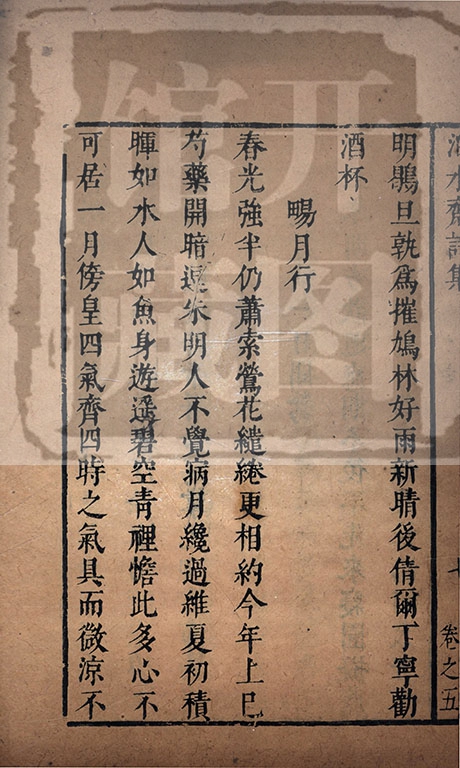 泊水齋詩集
卷之五
明鵙旦孰為摧鳩林好雨新晴後倩爾丁寧勸
酒杯
暘月行
春光強半仍蕭索鶯花繾綣更相約今年上巳
芍藥開暗遲朱明人不覺病月纔過維夏初積
暉如水人如魚身遊遥碧空青裡憺此多心不
可居一月傍皇四氣齊四時之氣具而微涼不